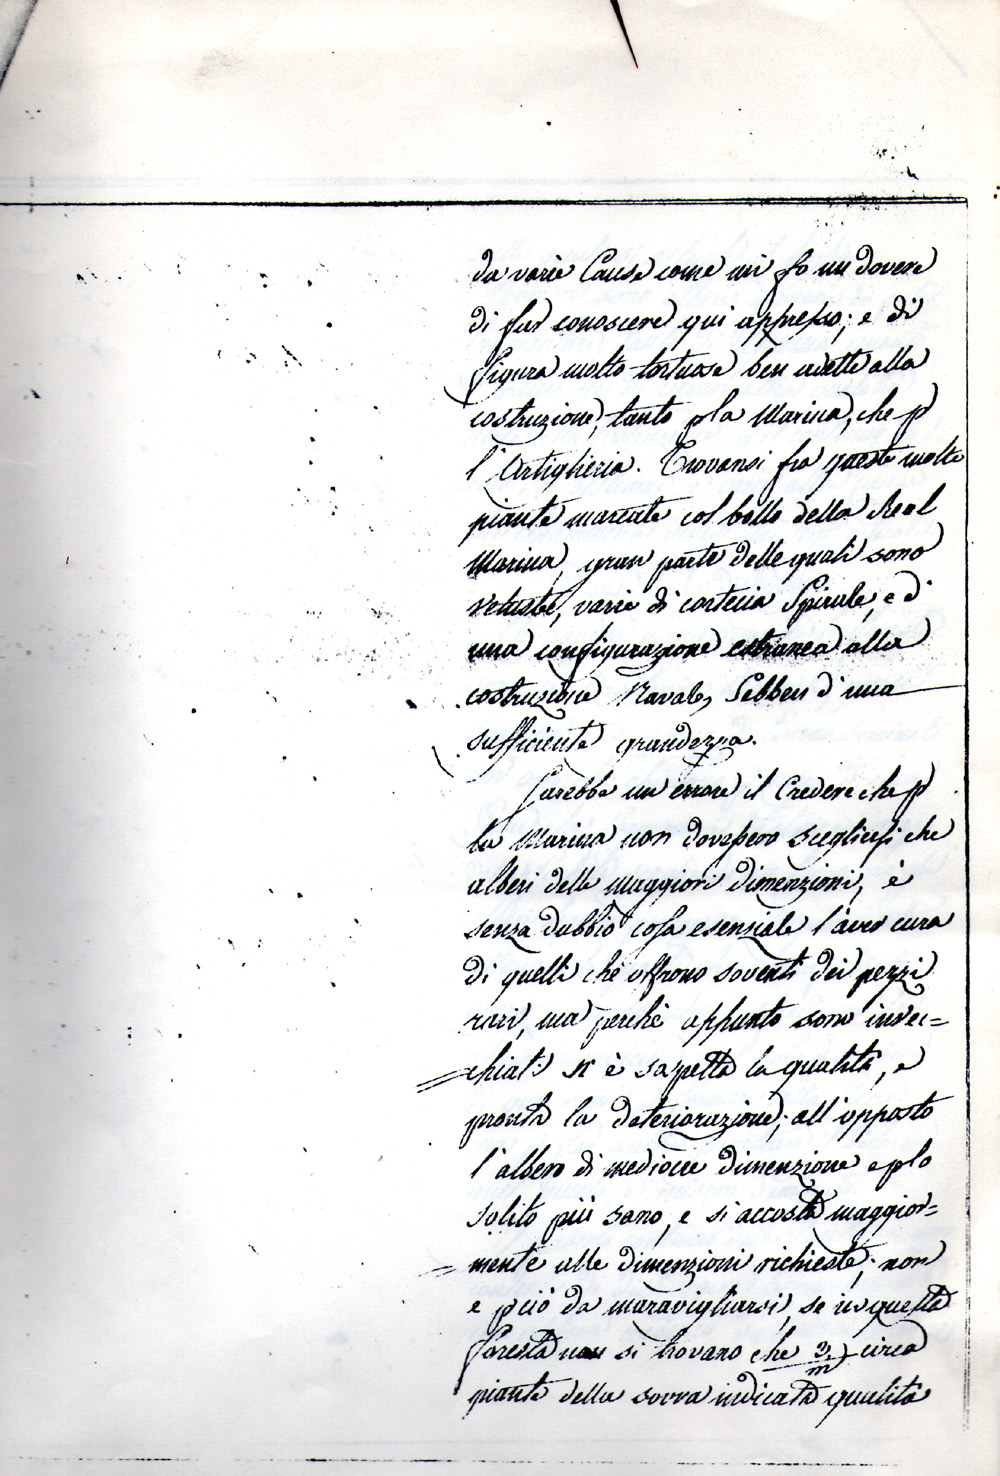 da varie Cause come mi fo un dovere
di far conoscere qui appresso; e di
figura molto tortuosa ben adatte alla
costruzione, tanto p la Marina, che p
l'Artiglieria. Trovansi fra queste molte
piante marcate col bollo della Real
Marina, gran parte delle quali sono
vetuste, varie di corteccia Spirale, e d'
una configurazione estranea alla
costruzione Navale, Sebben d'una
sufficiente grandezza.
Sarebbe un errore il Credere che p
la Marina non dovessero scegliersi che
alberi delle maggiori dimenzioni, è
senza dubbio cosa esenziale l'aver cura
di quelli che offrono soventi dei pezzi
rari, ma perchè appunto sono invec=
chiati n'è sospetta la qualità, e
pronta la deteriorazione; all'opposto
l'albero di mediocre dimenzione e plo
solito più sano, e si accosta maggior=
mente alle dimenzioni richieste; non
e pciò da maravigliarsi, se in questa
foresta non si trovano che 3/m circa
piante della sovra indicata qualità